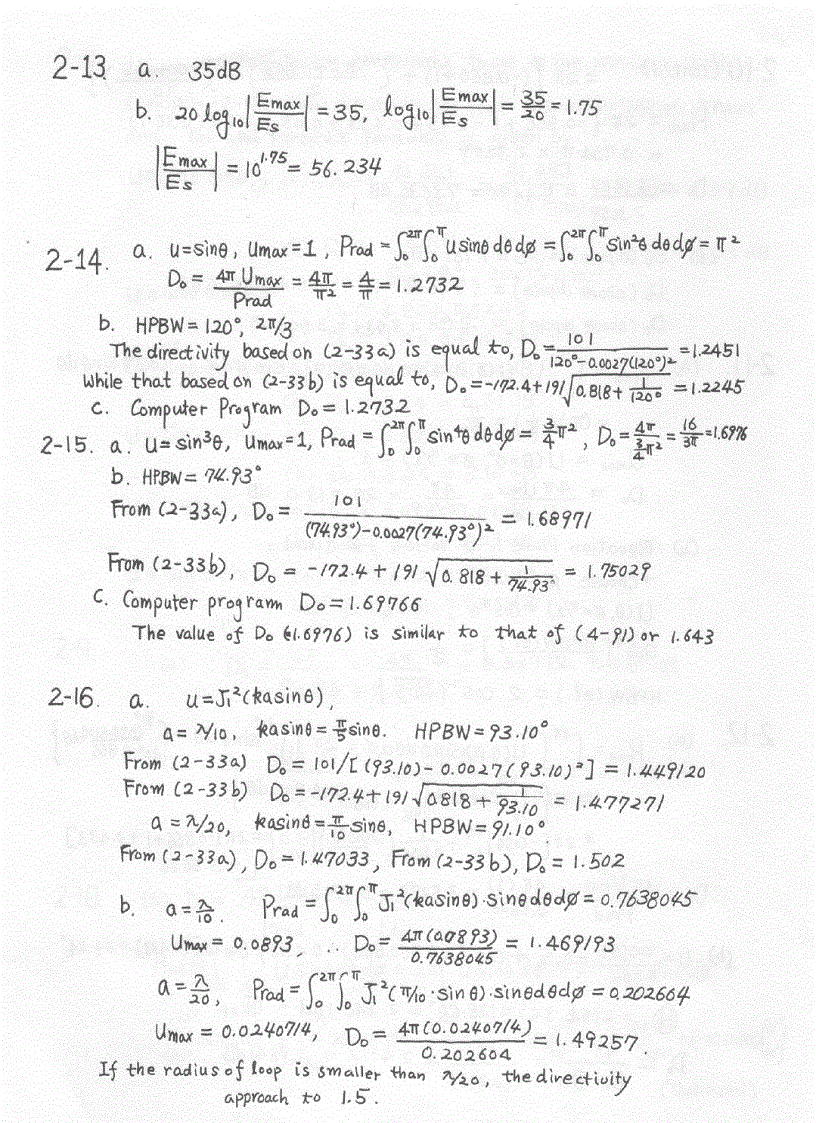 2-13 a. 35dB
b. 20 log₁₀|Emax/Es| = 35, log₁₀|Emax/Es| = 35/20 = 1.75
|Emax/Es| = 10^1.75 = 56.234
2-14. a. U=sinθ, Umax=1, Prad = ∫₀^2π ∫₀^π U sinθ dθ dø = ∫₀^2π ∫₀^π sin²θ dθ dø = π²
D₀ = 4π Umax/Prad = 4π/π² = 4/π = 1.2732
b. HPBW = 120°, 2π/3
The directivity based on (2-33a) is equal to, D₀ = 101/(120°-0.0027(120°)²) = 1.2451
While that based on (2-33b) is equal to, D₀ = -172.4+191√(0.818+1/120°) = 1.2245
c. Computer Program D₀ = 1.2732
2-15. a. U = sin³θ, Umax=1, Prad = ∫₀^2π ∫₀^π sin⁴θ dθ dø = 3/4 π², D₀ = 4π/(3/4 π²) = 16/3π = 1.6976
b. HPBW = 74.93°
From (2-33a), D₀ = 101/((74.93°)-0.0027(74.93°)²) = 1.68971
From (2-33b), D₀ = -172.4 + 191√(0.818 + 1/74.93°) = 1.75029
c. Computer program D₀ = 1.69766
The value of D₀ (1.6976) is similar to that of (4-91) or 1.643
2-16. a. U = J₁²(ka sinθ),
a = λ/10, ka sinθ = π/5 sinθ. HPBW = 93.10°
From (2-33a) D₀ = 101/[(93.10) - 0.0027(93.10)²] = 1.449120
From (2-33b) D₀ = -172.4 + 191√(0.818 + 1/93.10) = 1.477271
a = λ/20, ka sinθ = π/10 sinθ, HPBW = 91.10°
From (2-33a), D₀ = 1.47033, From (2-33b), D₀ = 1.502
b. a = λ/10. Prad = ∫₀^2π ∫₀^π J₁²(ka sinθ)·sinθ dθ dø = 0.7638045
Umax = 0.0893, ... D₀ = 4π(0.0893)/0.7638045 = 1.469193
a = λ/20, Prad = ∫₀^2π ∫₀^π J₁²(π/10·sinθ)·sinθ dθ dø = 0.202604
Umax = 0.0240714, D₀ = 4π(0.0240714)/0.202604 = 1.49257.
If the radius of loop is smaller than λ/20, the directivity
approach to 1.5.